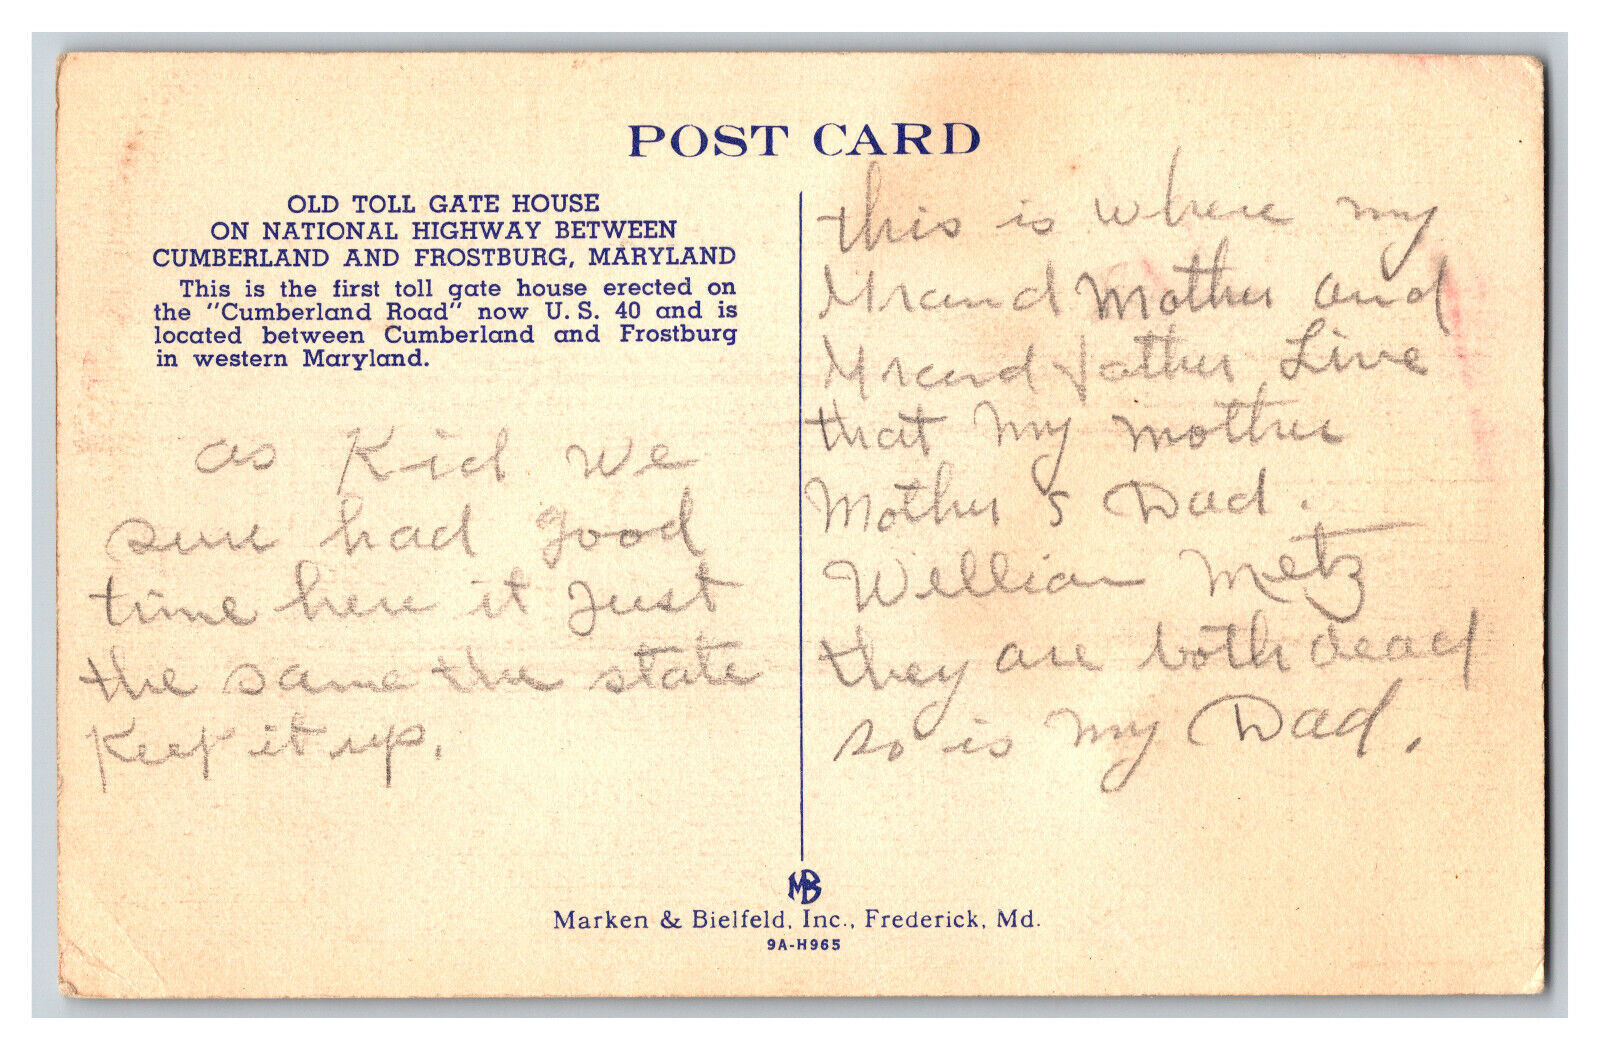 POST CARD
OLD TOLL GATE HOUSE
ON NATIONAL HIGHWAY BETWEEN
CUMBERLAND AND FROSTBURG, MARYLAND
This is the first toll gate house erected on
the "Cumberland Road" now U. S. 40 and is
located between Cumberland and Frostburg
in western Maryland.
as Kid we
sure had good
time here it Just
the same the state
Keep it up.
this is where my
Grand Mother and
Grand father Live
that my mother
Mother s Dad.
William Metz
they are both dead
so is my Dad.
MB
Marken & Bielfeld, Inc., Frederick, Md.
9A-H965